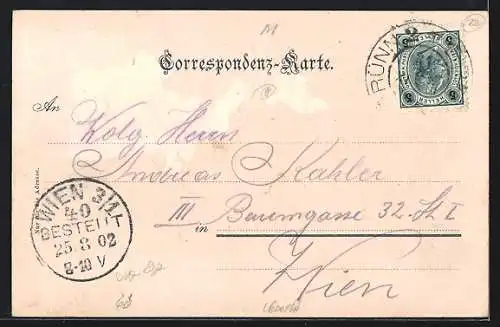 Correspondenz-Karte.
RÜNN
5
An
Wolg. Herrn
Andreas Kahler
III Baumgasse 32. St. I
in
Wien
Nur für die Adresse.
WIEN 3/1
40
BESTELLT
25.8.02
8-10 V